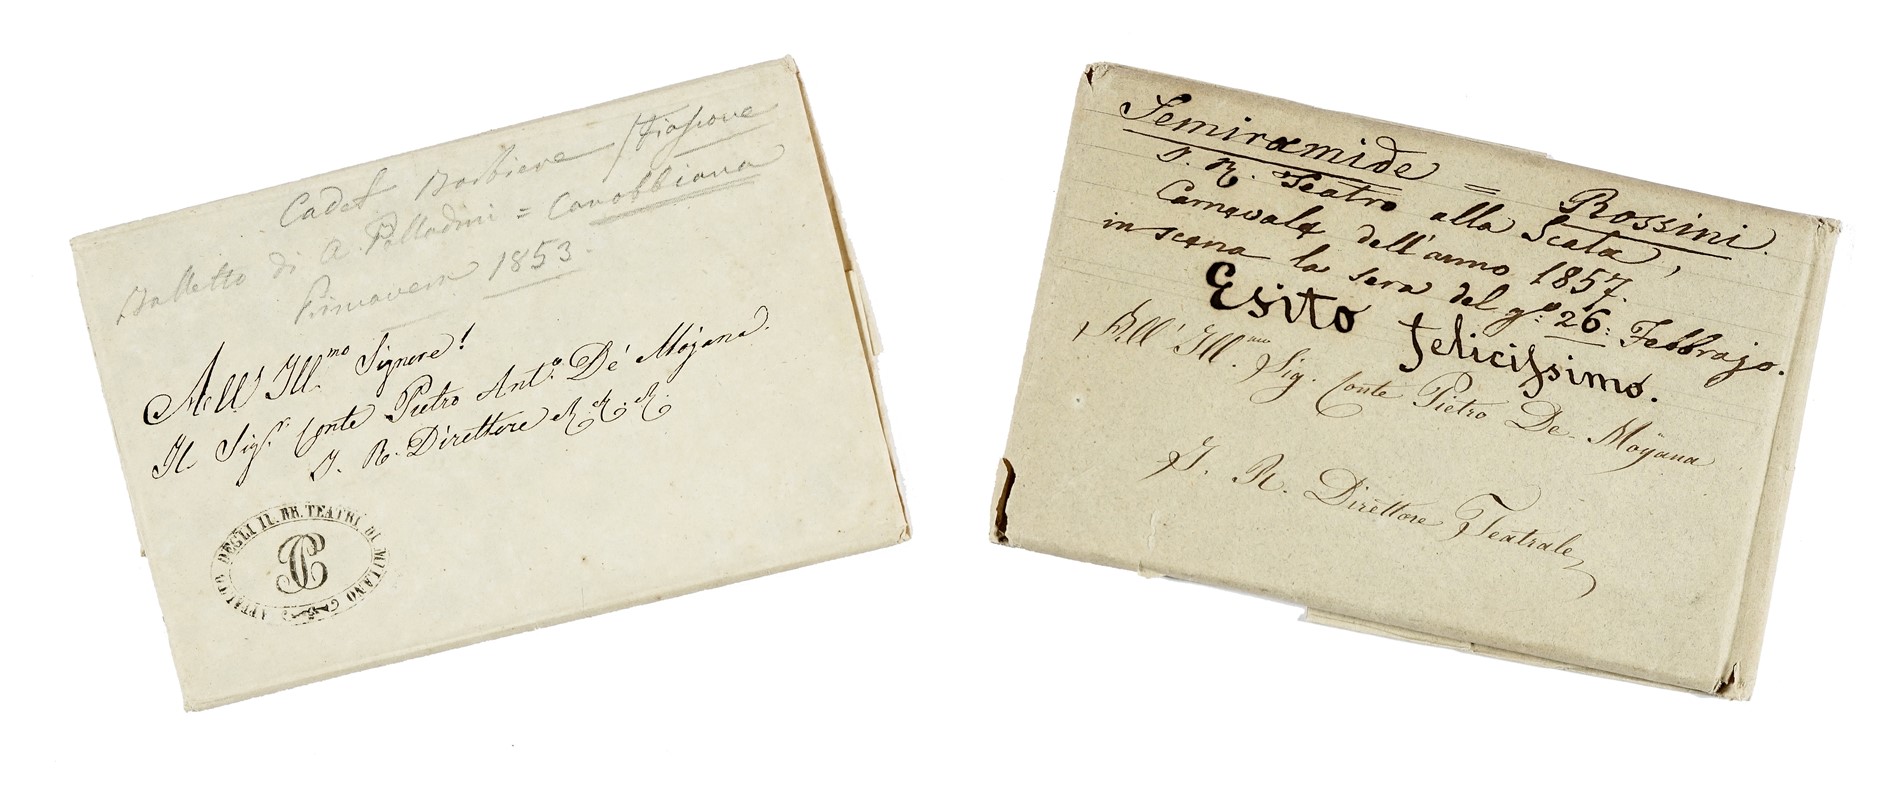 Cadet Barbiere / Fiascone
Balletto di A. Palladini = Canobbiana
Primavera 1853.
All' Ill.mo Signore!
Il Sig.r Conte Pietro Ant.o De' Mojana.
I. R. Direttore
APPALTO DEGLI II. RR. TEATRI DI MILANO
Semiramide = Rossini.
I. R. Teatro alla Scala,
Carnevale dell'anno 1857.
in scena la sera del g.o 26. Febbrajo.
Esito felicissimo.
All' Ill.mo Sig. Conte Pietro De-Möyana
I. R. Direttore Teatrale